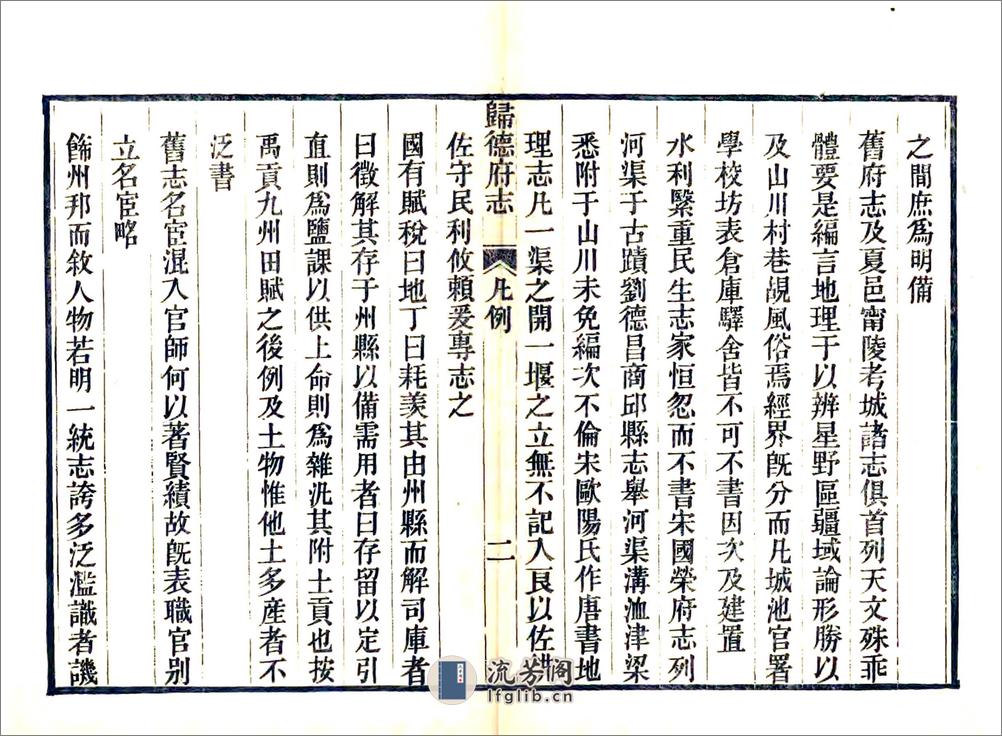 之間庶爲明備
舊府志及夏邑甯陵考城諸志俱首列天文殊乖
體要是編言地理于以辨星野區疆域論形勝以
及山川村巷覘風俗焉經界旣分而凡城池官署
學校坊表倉庫驛舍皆不可不書因次及建置
水利繄重民生志家恒忽而不書宋國榮府志列
河渠于古蹟劉德昌商邱縣志舉河渠溝洫津梁
悉附于山川未免編次不倫宋歐陽氏作唐書地
理志凡一渠之開一堰之立無不記入良以佐耕
歸德府志 凡例 二
佐守民利攸賴爰專志之
國有賦稅曰地丁曰耗羨其由州縣而解司庫者
曰徵解其存于州縣以備需用者曰存留以定引
直則爲鹽課以供上命則爲雜汣其附土貢也按
禹貢九州田賦之後例及土物惟他土多産者不
泛書
舊志名宦混入官師何以著賢績故旣表職官别
立名宦略
飾州邦而敘人物若明一統志誇多泛濫識者譏
流芳阁
lfglib.cn